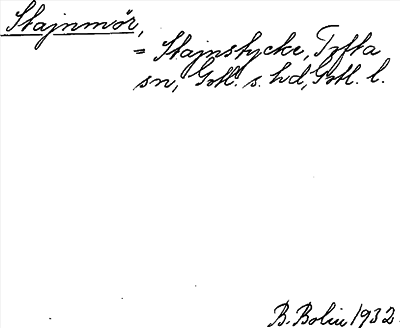 Stajnmör,
= Stajnstycke, Tofta
sn, Gotl. s. hd, Gotl. l.
B. Bolin 1932.